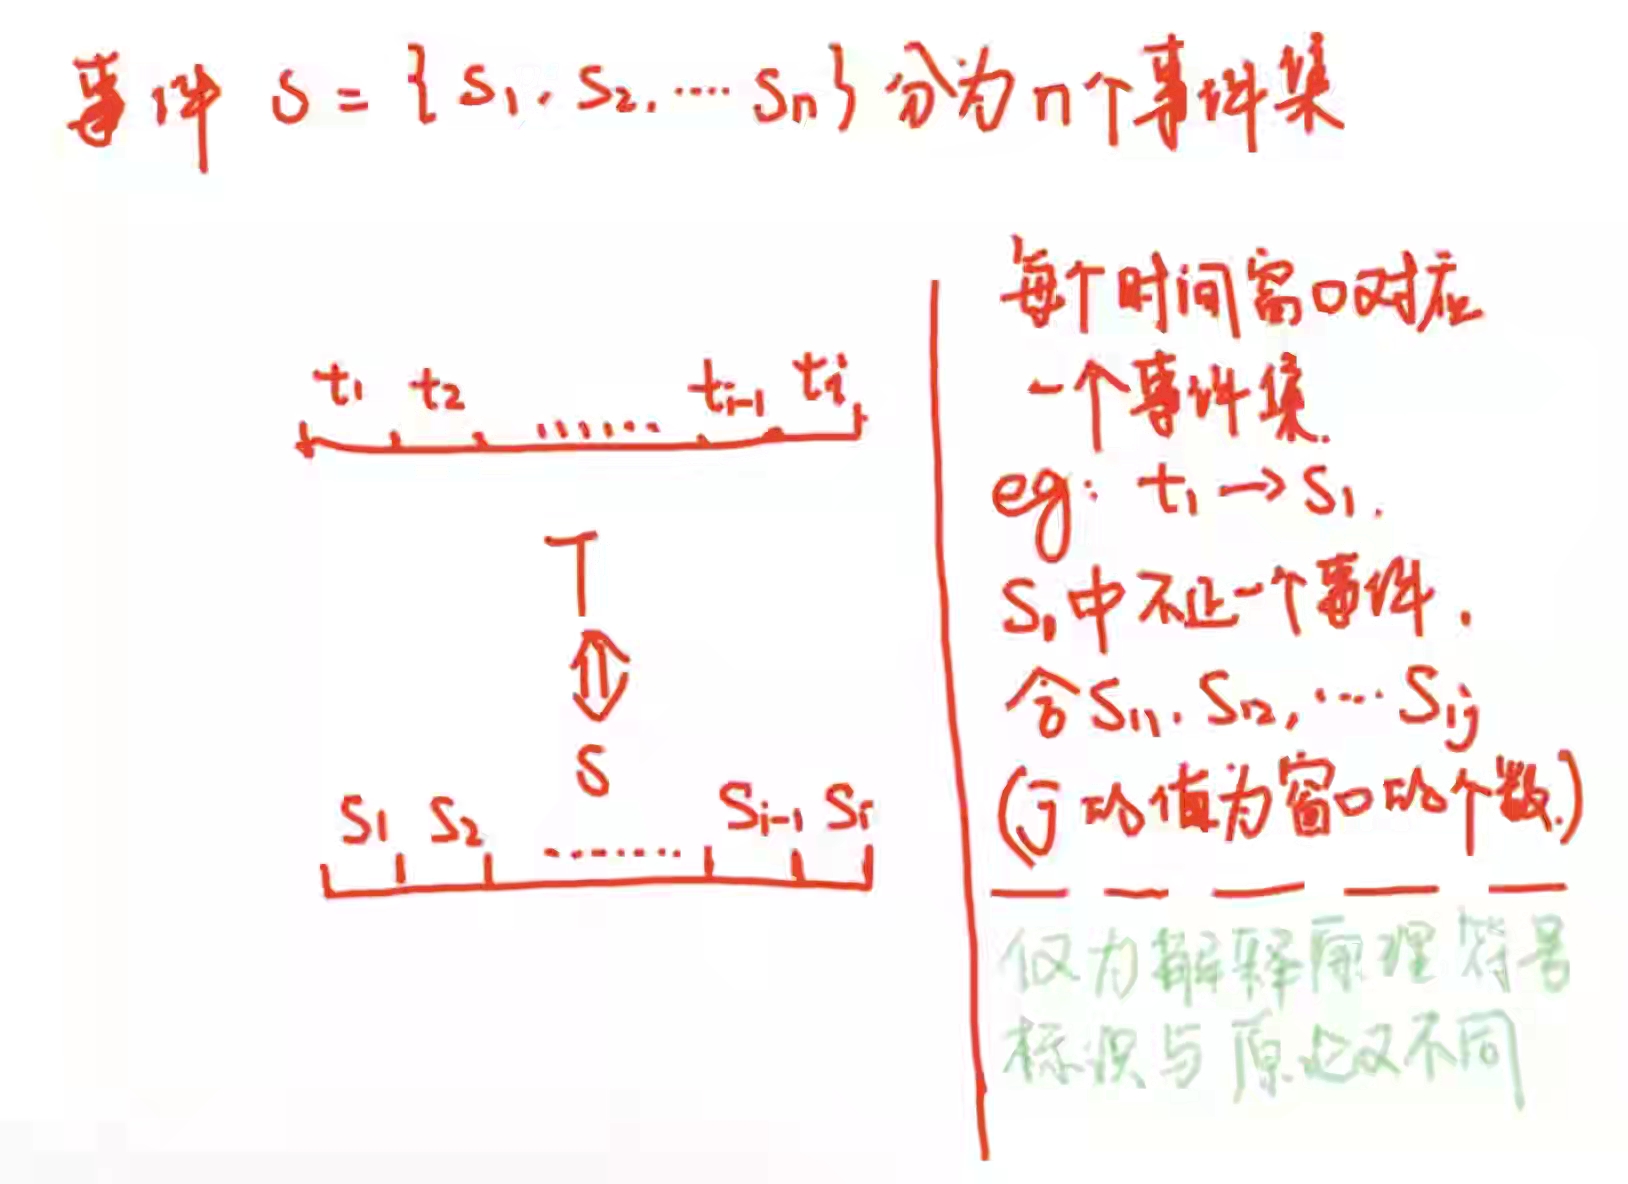 事件 S = { S1, S2, ···· Sn } 分为n个事件集
t1 t2 ······· ti-1 ti
T
S
S1 S2 ······· Si-1 Si
每个时间窗口对应
一个事件集.
eg: t1 → S1.
S1中不止一个事件.
含S11, S12, ···· S1j
(j的值为窗口的个数.)
仅为解释原理符号
标识与原论文不同